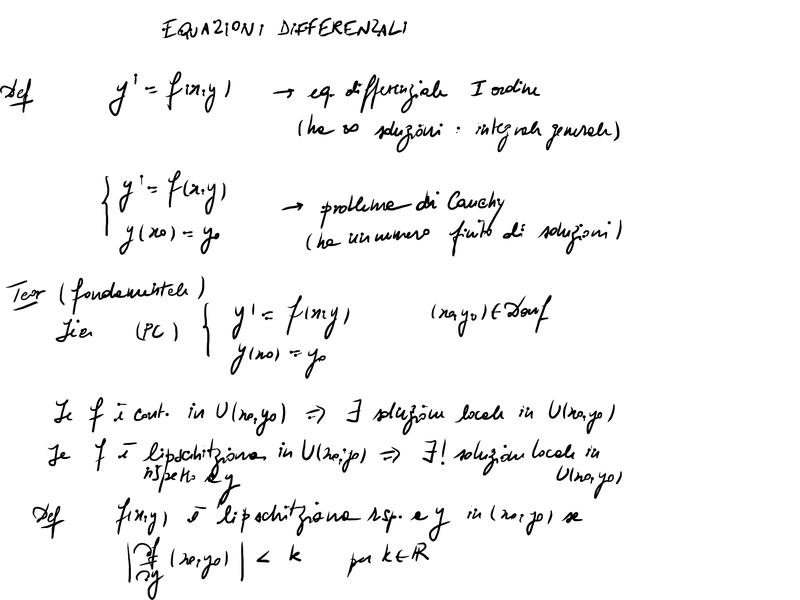 EQUAZIONI DIFFERENZALI
Def y' = f(x,y) → eq. differenziale I ordine
(ha ∞ soluzioni : integrale generale)
{ y' = f(x,y)
y(x0) = y0 → problema di Cauchy
(ha un numero finito di soluzioni)
Teor (fondamentale)
Sia (PC) { y' = f(x,y) (x0,y0) ∈ Domf
y(x0) = y0
Se f è cont. in U(x0,y0) => ∃ soluzione locale in U(x0,y0)
Se f è lipschitziana in U(x0,y0) => ∃! soluzione locale in
rispetto a y U(x0,y0)
Def f(x,y) è lipschitziana risp. a y in (x0,y0) se
|∂f/∂y (x0,y0)| < k per k∈ℝ